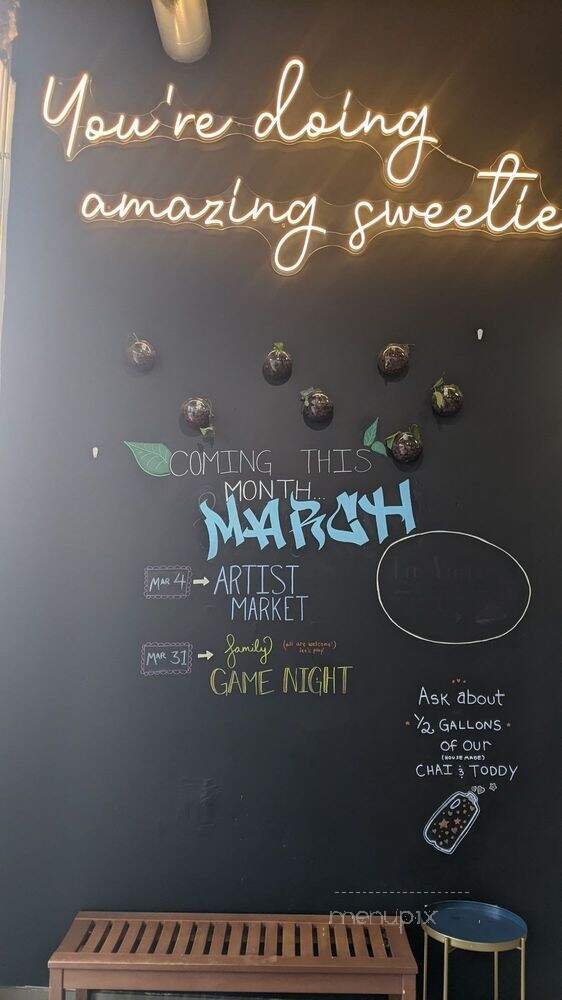 You're doing
amazing sweetie
COMING THIS
MONTH...
MARCH
MAR 4 ARTIST
MARKET
MAR 31 family (all are welcome!)
let's play!
GAME NIGHT
ASK about
1/2 GALLONS
OF OUR
(HOUSE MADE)
CHAI & TODDY
menupix